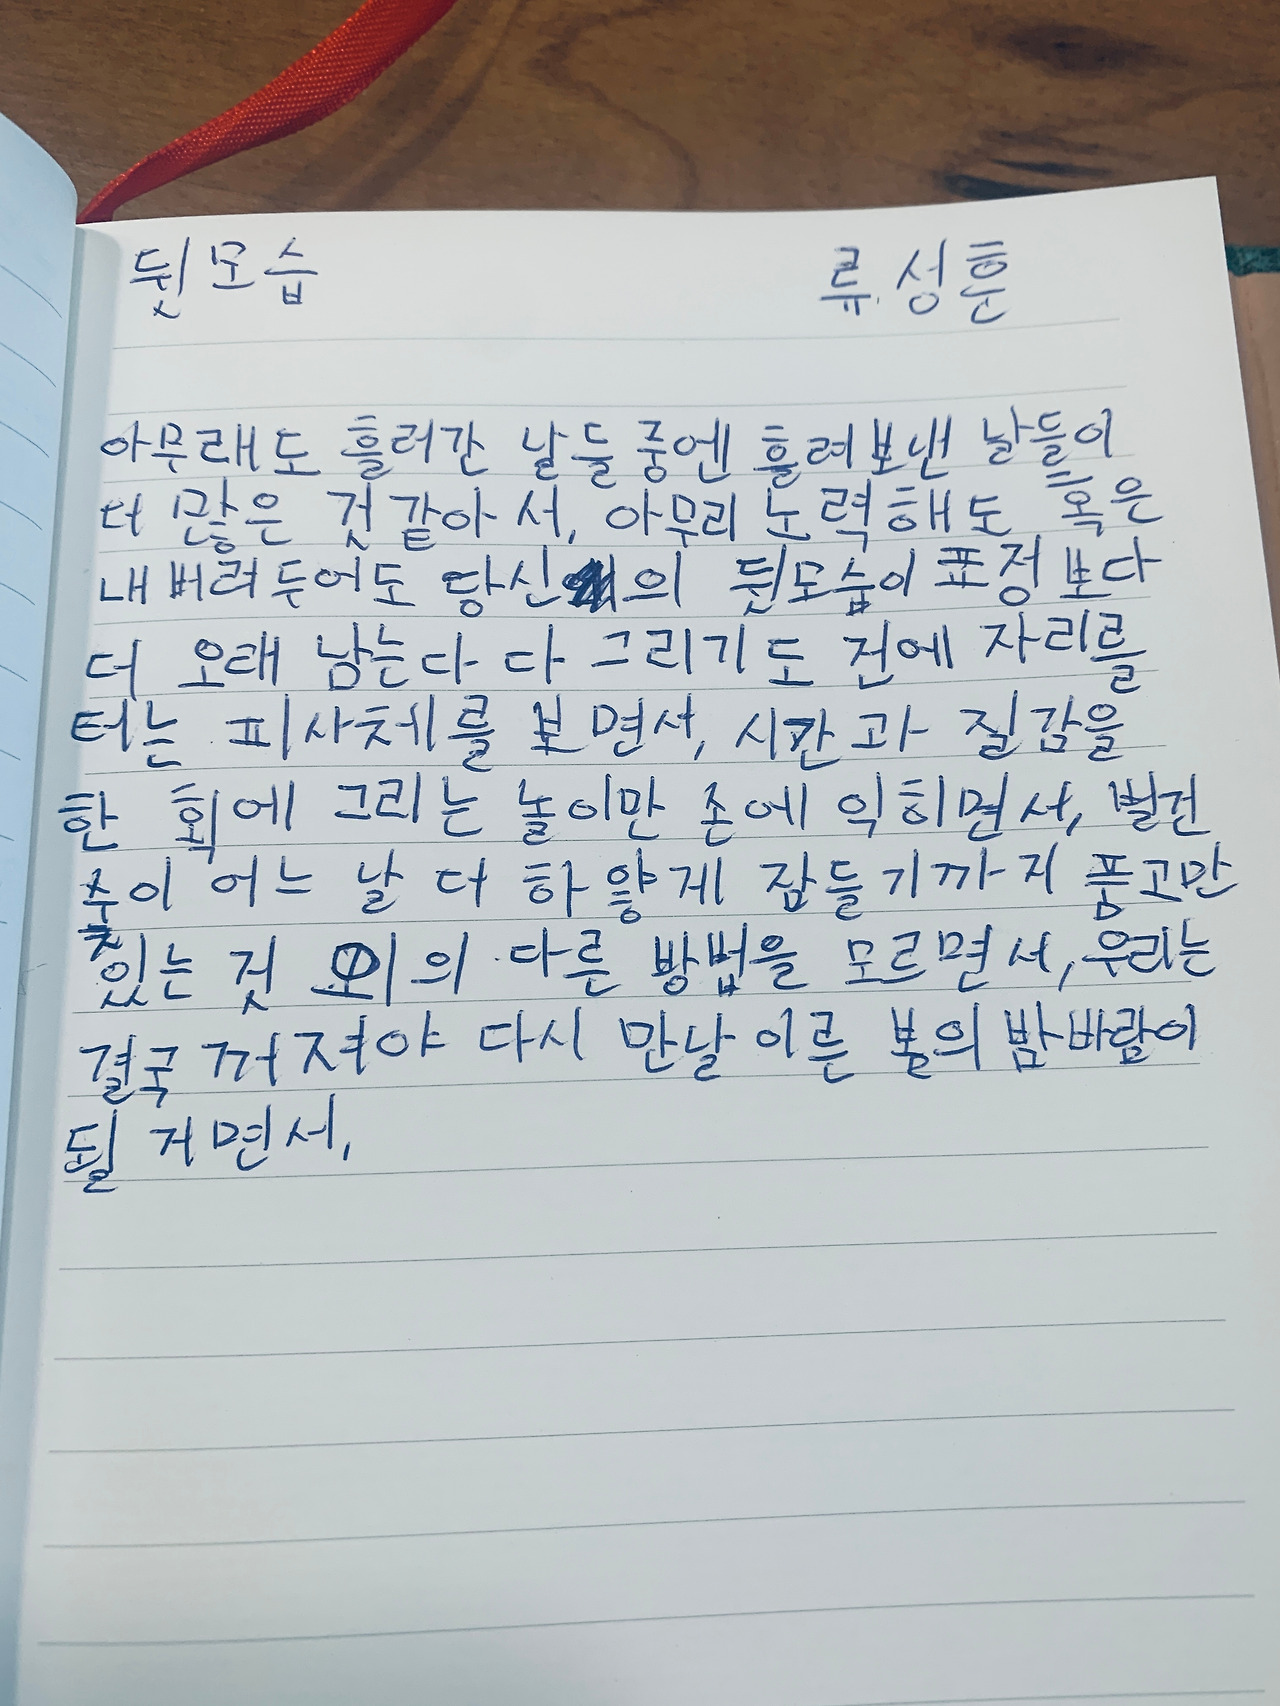 뒷모습 류성훈
아무래도 흘러간 날들 중엔 흘려보낸 날들이
더 많은 것 같아서, 아무리 노력해도 혹은
내버려두어도 당신의 뒷모습이 표정보다
더 오래 남는다 다 그리기도 전에 자리를
터는 피사체를 보면서, 시간과 질감을
한 획에 그리는 놀이만 손에 익히면서, 벌건
숯이 어느 날 더 하얗게 잠들기까지 품고만
있는 것 외의 다른 방법을 모르면서, 우리는
결국 꺼져야 다시 만날 이른 봄의 밤바람이
될 거면서,